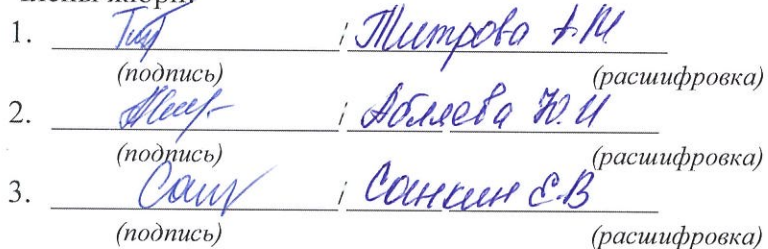 Члены жюри:
1. ; Титрова А.М
(подпись) (расшифровка)
2. ; Абляева Ю.И
(подпись) (расшифровка)
3. ; Санкин Е.В
(подпись) (расшифровка)